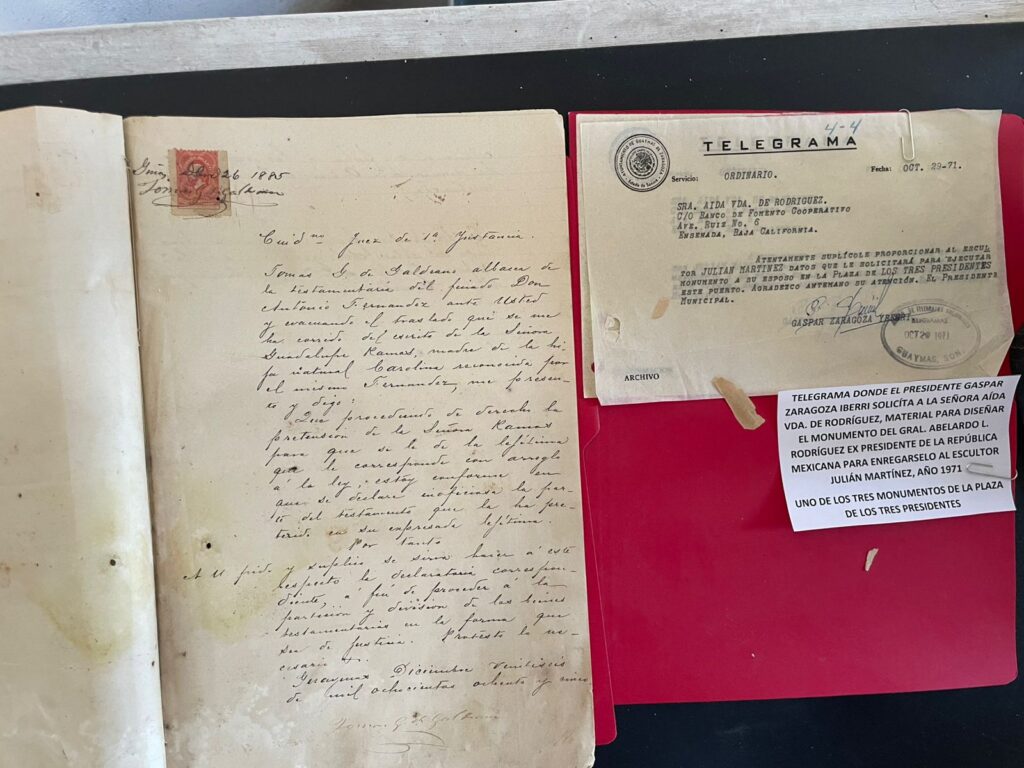 26 1885
Ciudno Juez de 1a Ynstancia.
Tomas G. de Galdeano albacea de
la testamentaria del finado Don
Antonio Fernandez ante Usted
y evacuando el traslado que se me
ha corrido del escrito de la Señora
Guadalupe Ramas, madre de la hi-
ja natural Carolina reconocida por
el mismo Fernandez, me presen-
to y digo:
Que procediendo de derecho la
pretension de la Señora Ramas
para que se le dé la lejítima
que le corresponde con arreglo
á la ley, estoy conforme en
que se declare inoficiosa la par-
te del testamento que la ha pre-
terido en su espresada lejitima.
Por tanto
A U pido y suplico se sirva hacer á este
respecto la declaratoria correspon-
diente, a fin de proceder á la
particion y division de los bienes
testamentarios en la forma que
sea de justicia. Protesto lo ne-
cesario
Guaymas Diciembre veintiseis
de mil ochocientos ochenta y cinco
Tomas G. de Galdeano
4-4
TELEGRAMA
AYUNTAMIENTO DE GUAYMAS DE ZARAGOZA
Estado de Sonora
Servicio: ORDINARIO.
Fecha: OCT. 29-71.
SRA. AIDA VDA. DE RODRIGUEZ.
C/O BANCO DE FOMENTO COOPERATIVO
AVE. RUIZ No. 6
ENSENADA, BAJA CALIFORNIA.
ATENTAMENTE SUPLÍCOLE PROPORCIONAR AL ESCUL
TOR JULIAN MARTINEZ DATOS QUE LE SOLICITARÁ PARA EJECUTAR
MONUMENTO A SU ESPOSO EN LA PLAZA DE LOS TRES PRESIDENTES
ESTE PUERTO. AGRADEZCO ANTEMANO SU ATENCIÓN. EL PRESIDENTE
MUNICIPAL.
GASPAR ZARAGOZA IBERRI
OCT 29 1971
GUAYMAS, SON.
ARCHIVO
TELEGRAMA DONDE EL PRESIDENTE GASPAR
ZARAGOZA IBERRI SOLICÍTA A LA SEÑORA AÍDA
VDA. DE RODRÍGUEZ, MATERIAL PARA DISEÑAR
EL MONUMENTO DEL GRAL. ABELARDO L.
RODRÍGUEZ EX PRESIDENTE DE LA REPÚBLICA
MEXICANA PARA ENREGARSELO AL ESCULTOR
JULIÁN MARTÍNEZ, AÑO 1971
UNO DE LOS TRES MONUMENTOS DE LA PLAZA
DE LOS TRES PRESIDENTES